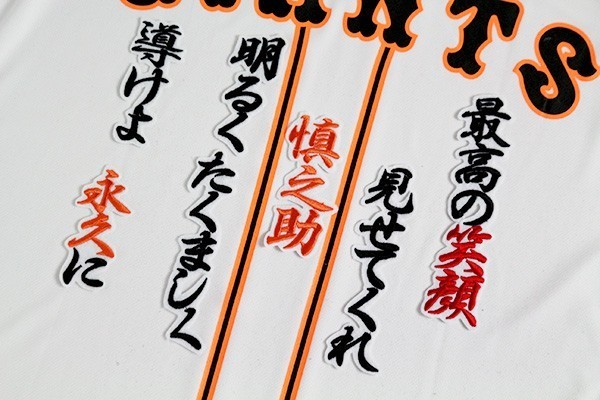 ANTS
最高の笑顔
見せてくれ
慎之助
明るく
たくましく
導けよ
永久に